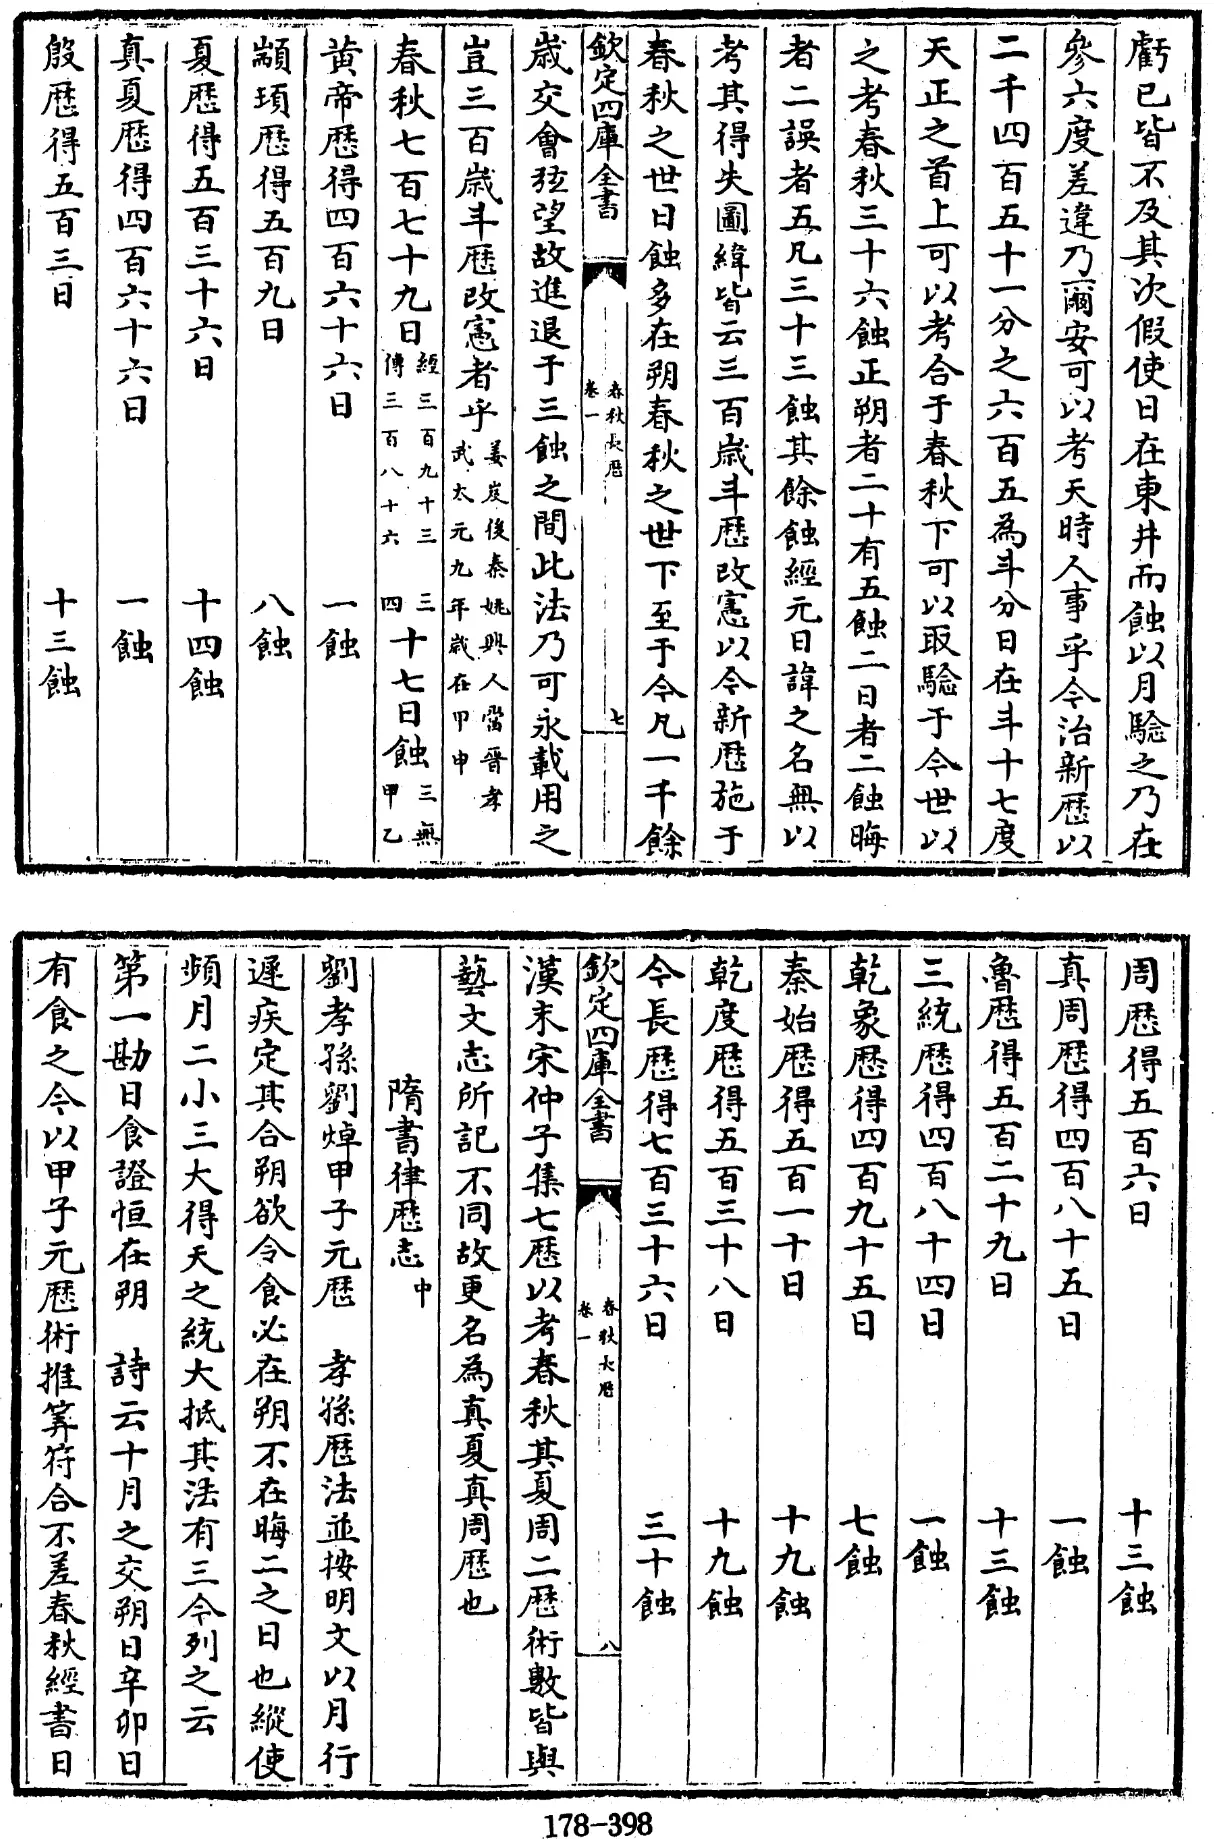 虧已皆不及其次假使日在東井而蝕以月驗之乃在
參六度差違乃爾安可以考天時人事乎今治新歷以
二千四百五十一分之六百五為斗分日在斗十七度
天正之首上可以考合于春秋下可以取驗于今世以
之考春秋三十六蝕正朔者二十有五蝕二日者二蝕晦
者二誤者五凡三十三蝕其餘蝕經元日諱之名無以
考其得失圖緯皆云三百歳斗歷改憲以今新歷施于
春秋之世日蝕多在朔春秋之世下至于今凡一千餘
欽定四庫全書
春秋長歷
卷一
七
歳交會弦望故進退于三蝕之間此法乃可永載用之
豈三百歳斗歷改憲者乎姜岌後秦姚興人當晉孝
武太元九年歳在甲申
春秋七百七十九日經三百九十三
傳三百八十六
三
四
十七日蝕三無
甲乙
黃帝歷得四百六十六日 一蝕
顓頊歷得五百九日 八蝕
夏歷得五百三十六日 十四蝕
真夏歷得四百六十六日 一蝕
殷歷得五百三日 十三蝕
周歷得五百六日 十三蝕
真周歷得四百八十五日 一蝕
魯歷得五百二十九日 十三蝕
三統歷得四百八十四日 一蝕
乾象歷得四百九十五日 七蝕
秦始歷得五百一十日 十九蝕
乾度歷得五百三十八日 十九蝕
今長歷得七百三十六日 三十蝕
欽定四庫全書
春秋長歷
卷一
八
漢末宋仲子集七歷以考春秋其夏周二歷術數皆與
藝文志所記不同故更名為真夏真周歷也
隋書律歷志中
劉孝孫劉焯甲子元歷 孝孫歷法並按明文以月行
遲疾定其合朔欲令食必在朔不在晦二之日也縱使
頻月二小三大得天之統大抵其法有三今列之云
第一勘日食證恒在朔 詩云十月之交朔日辛卯日
有食之今以甲子元歷術推筭符合不差春秋經書日
178-398